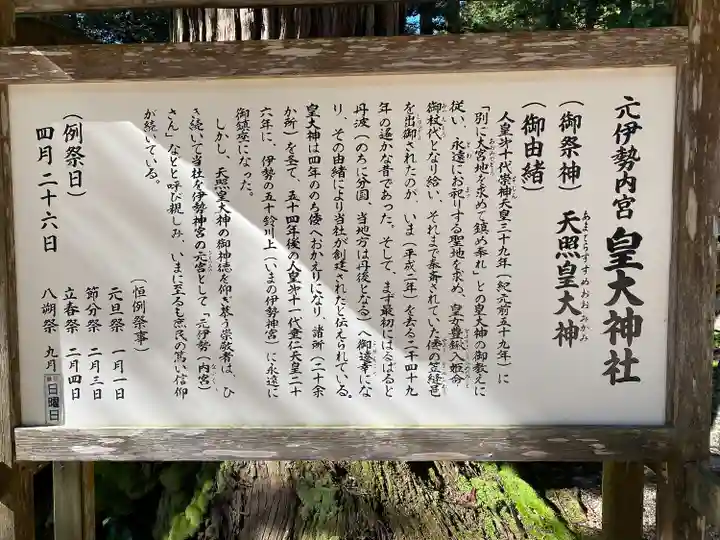 元伊勢内宮 皇大神社
(御祭神) 天照皇大神
あまてらすすめおおみかみ
(御由緒)
人皇第十代崇神天皇三十九年(紀元前五十九年)に
「別に大宮地を求めて鎮め奉れ」との皇大神の御教えに
従い、永遠にお祀りする聖地を求め、皇女豊鋤入姫命
御杖代となり給い、それまで奉斎されていた倭の笠縫邑
を出御されたのが、いま(平成二年)を去る二千四十九
年の遙かな昔であった。そして、まず最初にはるばると
丹波(のちに分国、当地方は丹後となる)へ御遷幸にな
り、その由緒により当社が創建されたと伝えられている。
皇大神は四年ののち倭へおかえりになり、諸所(二十余
か所)を経て、五十四年後の人皇第十一代垂仁天皇二十
六年に、伊勢の五十鈴川上(いまの伊勢神宮)に永遠に
御鎮座になった。
しかし、天照皇大神の御神徳を仰ぎ慕う崇敬者は、ひ
き続いて当社を伊勢神宮の元宮として「元伊勢(内宮)
さん」などと呼び親しみ、いまに至るも庶民の篤い信仰
が続いている。
(恒例祭事)
元旦祭 一月一日
節分祭 二月三日
立春祭 二月四日
八朔祭 九月 日曜日
(例祭日)
四月二十六日